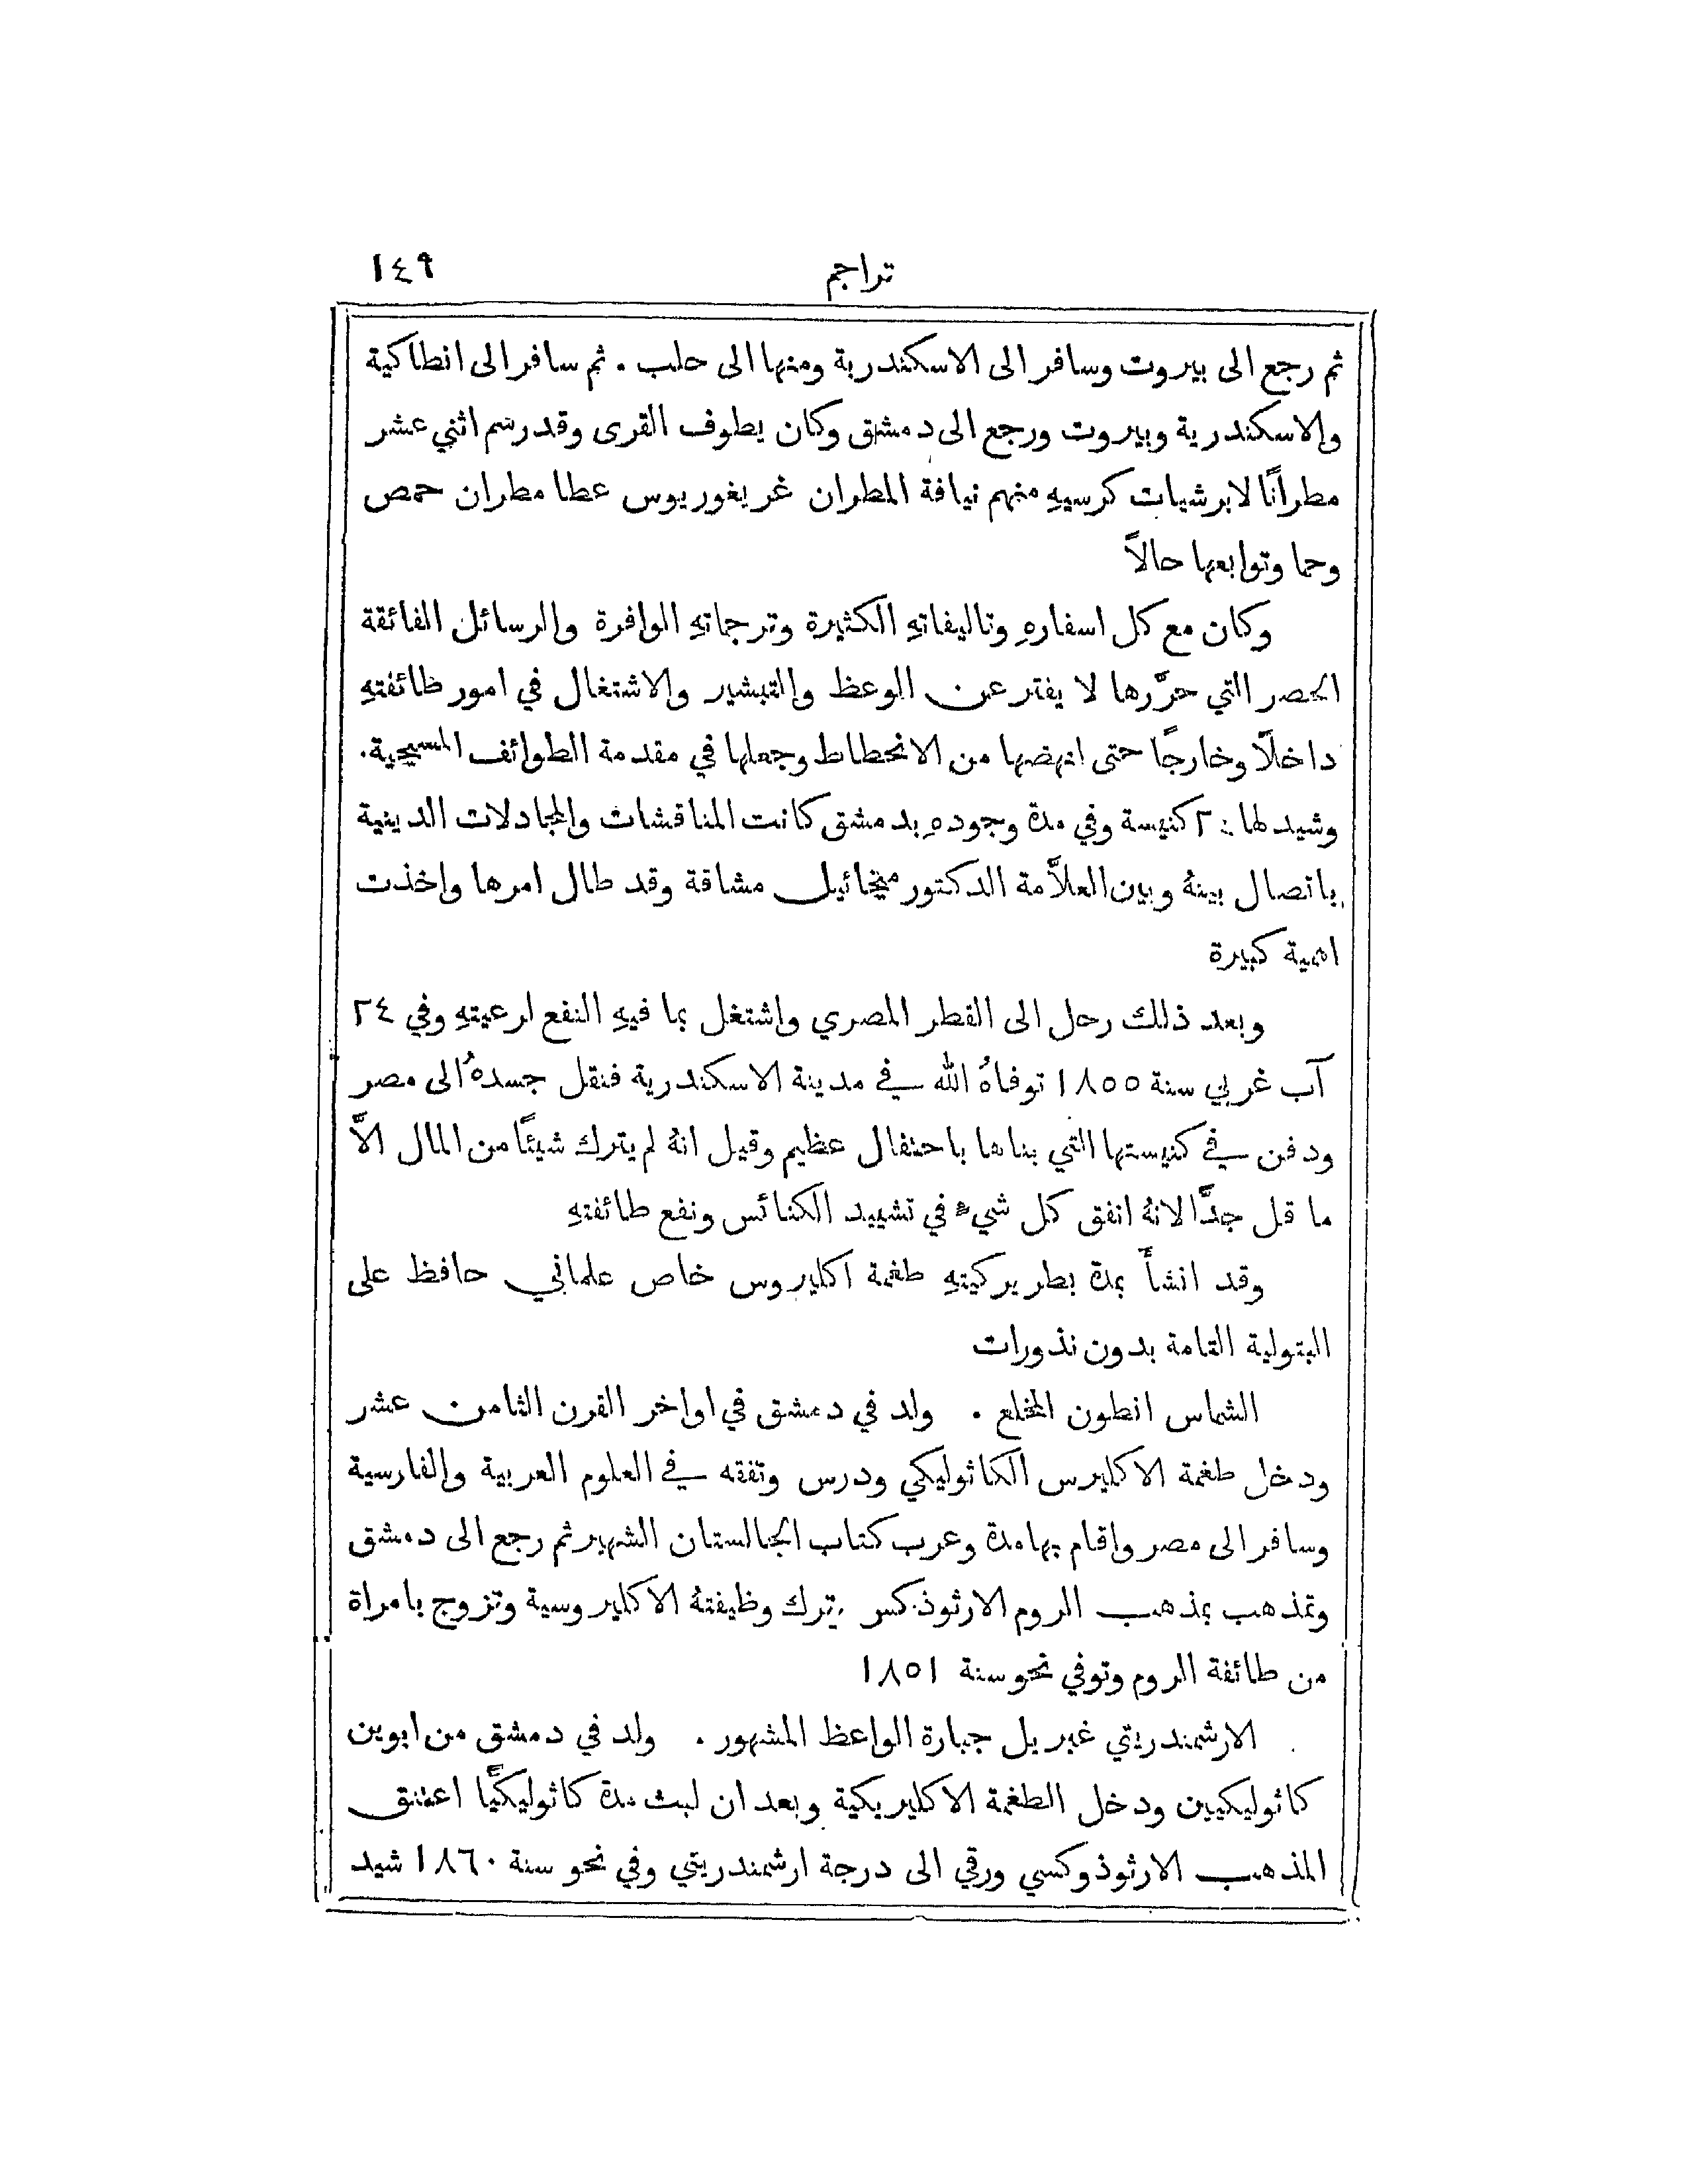 تراجم ١٤٩
ثم رجع الى بيروت وسافر الى الاسكندرية ومنها الى حلب . ثم سافر الى انطاكية
والاسكندرية وبيروت ورجع الى دمشق وكان يطوف القرى وقد رسم اثني عشر
مطرانًا لابرشيات كرسيهِ منهم نيافة المطران غريغوريوس عطا مطران حمص
وحما وتوابعها حالاً
وكان مع كل اسفارهِ وتاليفاتهِ الكثيرة وترجماتهِ الوافرة والرسائل الفائقة
الحصر التي حرَّرها لا يفتر عن الوعظ والتبشير والاشتغال في امور طائفتهِ
داخلاً وخارجًا حتى انهضها من الانحطاط وجعلها في مقدمة الطوائف المسيحية.
وشيد لها كنيسة وفي مدة وجودهِ بدمشق كانت المناقشات والمجادلات الدينية
باتصال بينهُ وبين العلاَّمة الدكتور ميخائيل مشاقة وقد طال امرها واخذت
اهمية كبيرة
وبعد ذلك رحل الى القطر المصري واشتغل بما فيهِ النفع لرعيتهِ وفي ٢٤
آب غربي سنة ١٨٥٥ توفاهُ الله في مدينة الاسكندرية فنقل جسدهُ الى مصر
ودفن في كنيستها التي بناها باحتفال عظيم وقيل انهُ لم يترك شيئًا من المال الاَّ
ما قل جدًّا لانهُ انفق كل شيءٍ في تشييد الكنائس ونفع طائفتهِ
وقد انشأَ بمدة بطريركيتهِ طغمة اكليروس خاص علماني حافظ على
البتولية التامة بدون نذورات
الشماس انطون المخلع . ولد في دمشق في اواخر القرن الثامن عشر
ودخل طغمة الاكليرس الكاثوليكي ودرس وتفقه في العلوم العربية والفارسية
وسافر الى مصر واقام بها مدة وعرب كتاب الجالستان الشهير ثم رجع الى دمشق
وتمذهب بمذهب الروم الارثوذكس وترك وظيفتهُ الاكليروسية وتزوج بامراة
من طائفة الروم وتوفي نحو سنة ١٨٥١
الارشمندريتي غبريل جبارة الواعظ المشهور . ولد في دمشق من ابوين
كاثوليكيين ودخل الطغمة الاكليريكية وبعد ان لبث مدة كاثوليكيًّا اعتنق
المذهب الارثوذوكسي ورقي الى درجة ارشمندريتي وفي نحو سنة ١٨٦٠ شيد